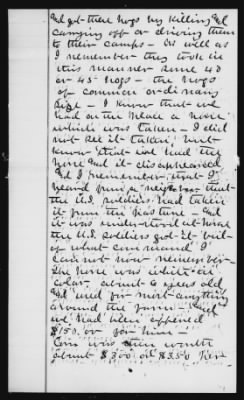 and got these hogs by killing and
carrying off or driving them
to their camps - as well as
I remember they took in
this manner some 40
or 45 hogs - the hogs
of common ordinary
size - I know that we
had on the place a horse
which was taken - I did
not see it taken but
know that we had the
horse and it disappeared
and I remember that I
heard from a neighbor that
the U.S. soldiers had taken
it from the pasture - and
it was understood at home
the U.S. soldiers got it but
of what command I
cannot now remember -
The horse was white in
color about 6 years old
and used for most anything
around the farm and
we had been offered
$150.00 for him -
Corn was then worth
about $3.00 or $3.50 per